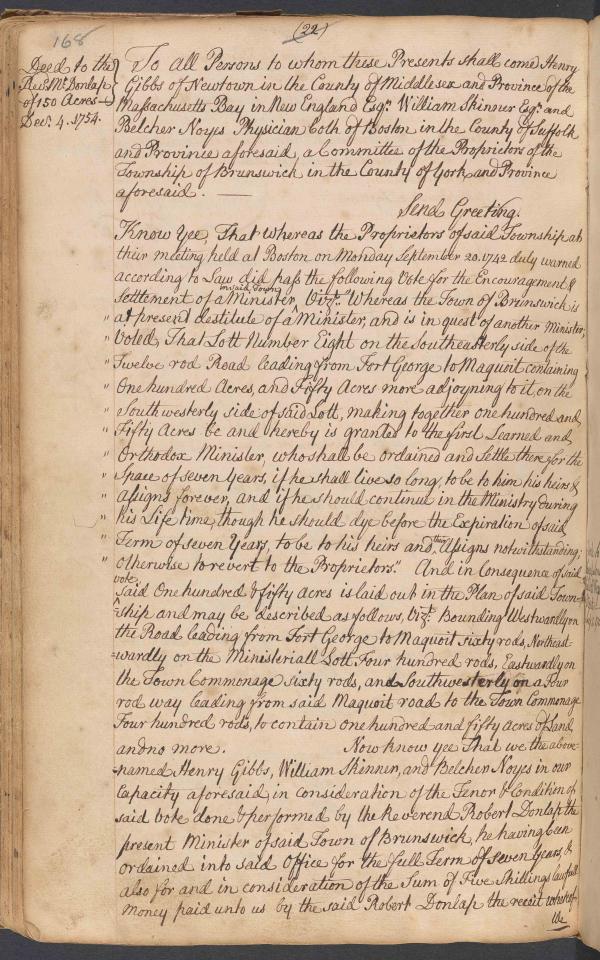 168
(22)
Deed to the
Revd. Mr. Dunlap
of 150 Acres
Decr. 4. 1754.
To All Persons to whom these Presents shall come Henry
Gibbs of Newtown in the County of Middlesex and Province of the
Massachusetts Bay in New England Esqr. William Skinner Esqr. and
Belcher Noyes Physician both of Boston in the County of Suffolk
and Province aforesaid, a Committee of the Proprietors of the
Township of Brunswick in the County of York and Province
aforesaid. —
Send Greeting.
Know Yee, That whereas the Proprietors of said Township at
their meeting held at Boston on Monday September 20. 1742 duly warned
according to Law did pass the following Vote for the Encouragement &
Settlement of a Minister in said Town, Vizt. "Whereas the Town of Brunswick is
" at present destitute of a Minister, and is in quest of another Minister;
" Voted, That Lott Number Eight on the Southeasterly side of the
" Twelve rod Road leading from Fort George to Maquoit containing
" One hundred Acres, and Fifty Acres more adjoyning to it, on the
" Southwesterly side of said Lott, making together one hundred and
" Fifty Acres be and hereby is granted to the first Learned and
" Orthodox Minister, who shall be ordained and Settle there for the
" Space of seven Years, if he shall live so long, to be to him his heirs &
" assigns forever, and if he should continue in the Ministry during
" his Life time, though he should dye before the Expiration of said
" Term of seven Years, to be to his heirs and their Assigns notwithstanding;
" otherwise to revert to the Proprietors." And in Consequence of said
vote,
Said One hundred & fifty acres is laid out in the Plan of said Town-
=ship and may be described as follows, Vizt. Bounding Westwardly on
the Road leading from Fort George to Maquoit sixty rods, Northeast
=wardly on the Ministeriall Lott Four hundred rods, Eastwardly on
the Town Commonage sixty rods, and Southwesterly on a Four
rod way leading from said Maquoit road to the Town Commonage
Four hundred rods, to contain one hundred and fifty Acres of Land,
and no more. Now know yee That we the above
=named Henry Gibbs, William Skinner, and Belcher Noyes in our
Capacity aforesaid, in consideration of the Tenor & Condition of
said vote done & performed by the Reverend Robert Dunlap the
present Minister of said Town of Brunswick, he having been
ordained into said Office for the full Term of seven Years, &
also for and in consideration of the Sum of Five Shillings lawfull
money paid unto us by the said Robert Dunlap the receit whereof
We